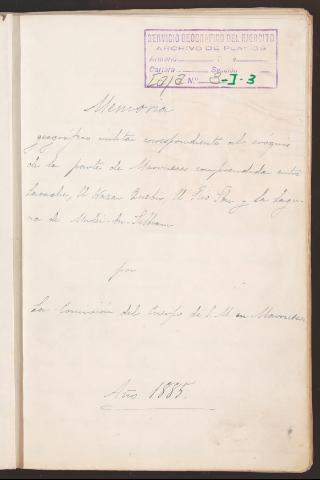 SERVICIO GEOGRAFICO DEL EJERCITO
ARCHIVO DE PLANOS
Armario
Carpeta Sección
Caja N.º 3-I-3
Memoria
geográfico militar correspondiente al cróquis
de la parte de Marruecos comprendida entre
Larache, El Kazar, El y la Lagu-
na de
por
La Comisión del Cuerpo de E. M. en Marruecos
Año 1885.